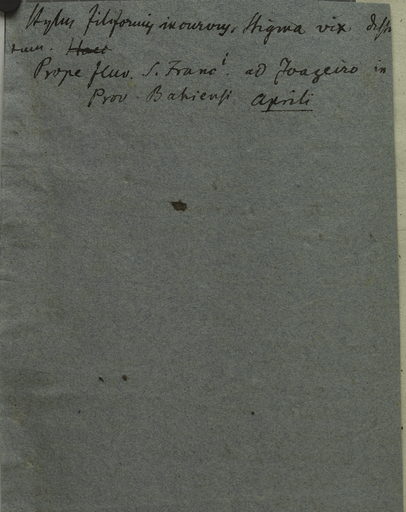 Stylus filiformis incurvus, Stigma vix
tum. Haec
Prope Fluv. S. Franc^i. ad Joazeiro in
Prov. Bahiensi Aprili